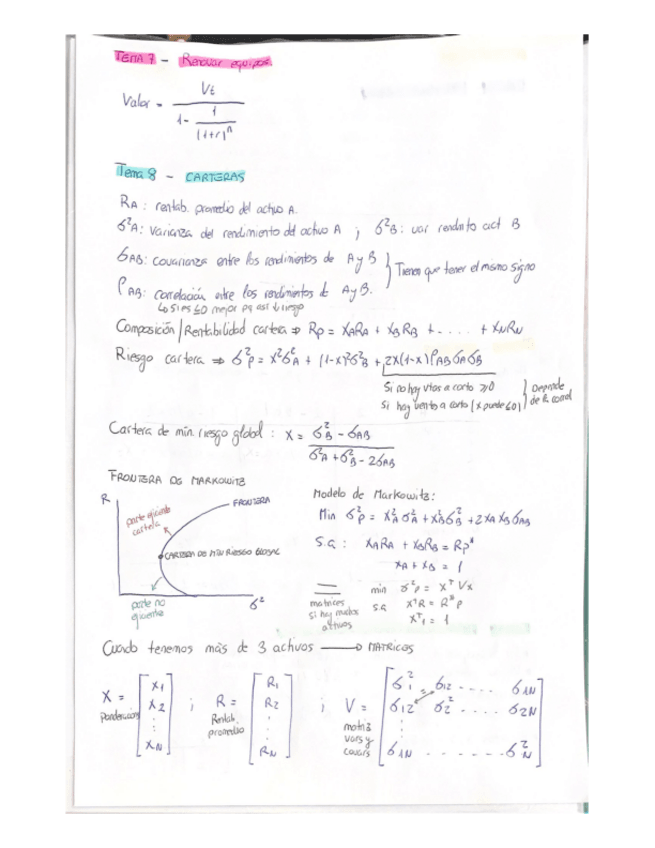 TEMA 7 - Renovar equipos.
Valor = Vt / (1 - 1/(1+r)^n)
Tema 8 - CARTERAS
RA: rentab. promedio del activo A.
σ²A: varianza del rendimiento del activo A ; σ²B: var rendmto act B
σAB: covarianza entre los rendimientos de A y B } Tienen que tener el mismo signo
ρAB: correlación entre los rendimientos de A y B.
↳ Si es ≤0 mejor pq así ↓ riesgo
Composición/Rentabilidad cartera ⇒ Rp = XARA + XBRB + ..... + XNRN
Riesgo cartera ⇒ σ²p = X²σ²A + (1-X)²σ²B + 2X(1-X)ρABσAσB
Si no hay vtas a corto ≥0 } Depende
Si hay venta a corto (X puede ≤0) } de la correl
Cartera de min. riesgo global: X = (σ²B - σAB) / (σ²A + σ²B - 2σAB)
FRONTERA DE MARKOWITZ
R
parte eficiente cartera
FRONTERA
CARTERA DE MIN RIESGO GLOBAL
parte no eficiente
σ²
Modelo de Markowitz:
Min σ²p = X²Aσ²A + X²Bσ²B + 2XAXBσAB
S.a: XARA + XBRB = Rp*
XA + XB = 1
matrices
si hay muchos
activos
min σ²p = Xᵀ Vx
s.a XᵀR = R*p
Xᵀ1 = 1
Cuando tenemos más de 3 activos ⟶ MATRICES
X = [X1 X2 ⋮ XN] ; R = [R1 R2 ⋮ RN] ; V = [σ1² σ12 .... σ1N
σ12 σ2² .... σ2N
⋮
σ1N ...... σ²N]
Ponderación
Rentab. promedio
matriz vars y covars